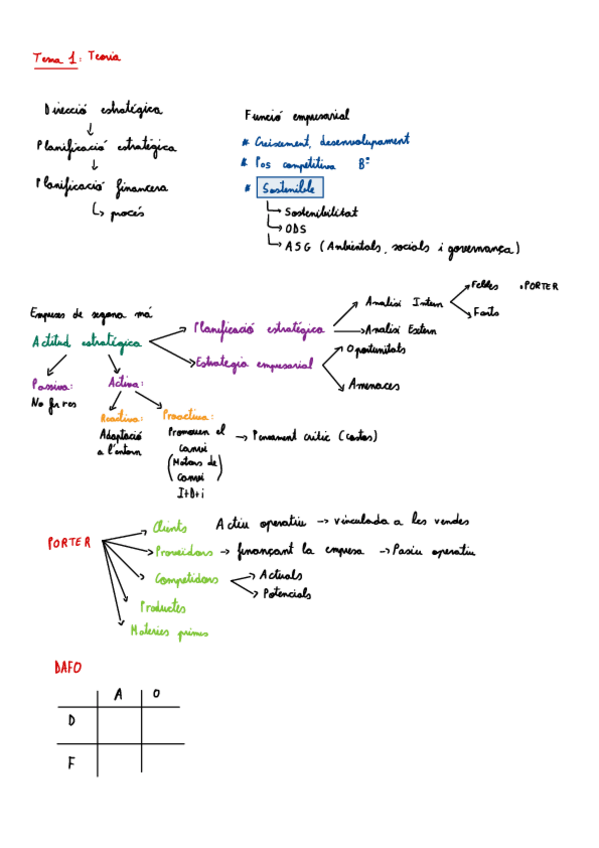 Tema 1: Teoria
Direcció estratégica
↓
Planificació estratégica
↓
Planificació financera
↳ procés
Funció empresarial
* Creixement, desenvolupament
* Pos competitiva
* Sostenible
↳ Sostenibilitat
↳ ODS
↳ ASG (Ambientals, socials i governança)
Empreses de segona mà
Actitud estratégica
Passiva:
No fer res
Activa:
Reactiva:
Adaptació
a l'entorn
Proactiva:
Promouen el
canvi
(Motors de
canvi)
I+D+i
→ Pensament crític (costos)
Planificació estratégica
Analisi Intern
Febles
Forts
.PORTER
Analisi Extern
Estrategia empresarial
Oportunitats
Amenaces
PORTER
Clients Actiu operatiu → vinculada a les vendes
Proveïdors → finançant la empresa → Pasiu operatiu
Competidors
Actuals
Potencials
Productes
Materies primes
DAFO
A O
D
F